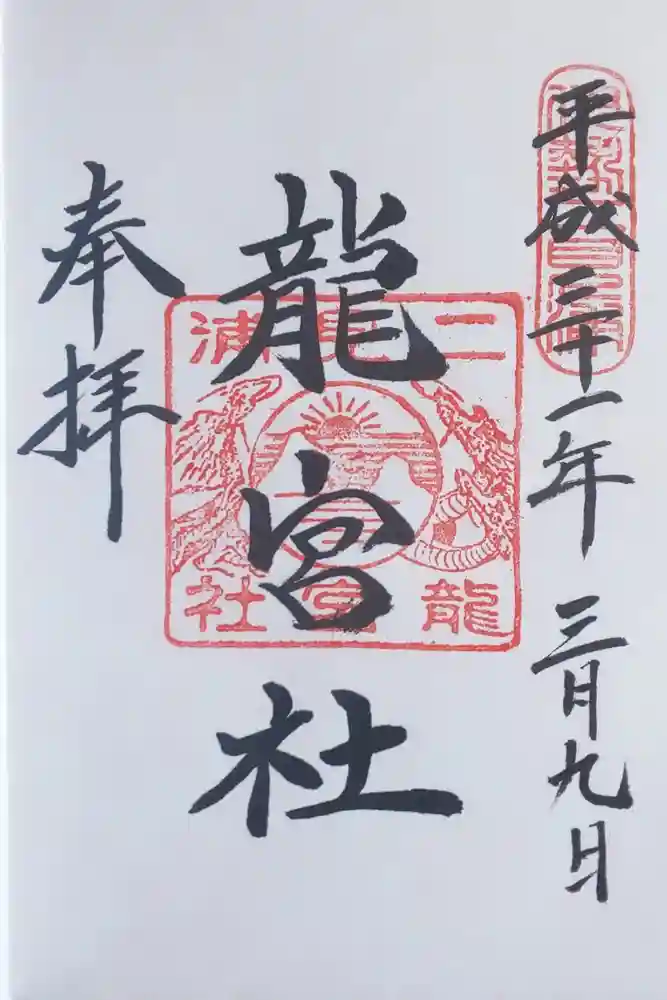 平成三十一年 三月九日
龍宮社
奉拝
二見浦
龍宮社